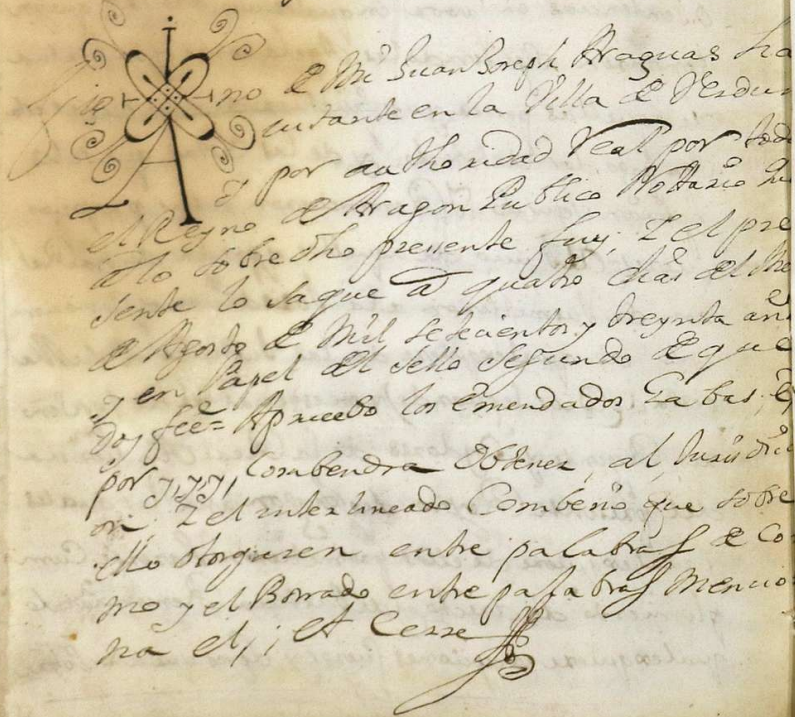 Signo de Mi Juan Joseph Araguas ha
vitante en la Villa de Verdun
y por authoridad Real por todo
el Reyno de Aragon Publico Nottario
a lo sobre dho presente fuy, Y el pre
sente lo saque a quatro dias del
de Agosto de Mil setecientos y treynta
y en Papel del sello segundo de que
Doy fee = Apruebo los Emendados
por y, y, y, Combendra Obtener, al,
on. Y el interlineado Combenio que sobre
ello otorguren entre palabras de Co
mo y el Borrado entre palabras Mencio
na el, ; et Cerre